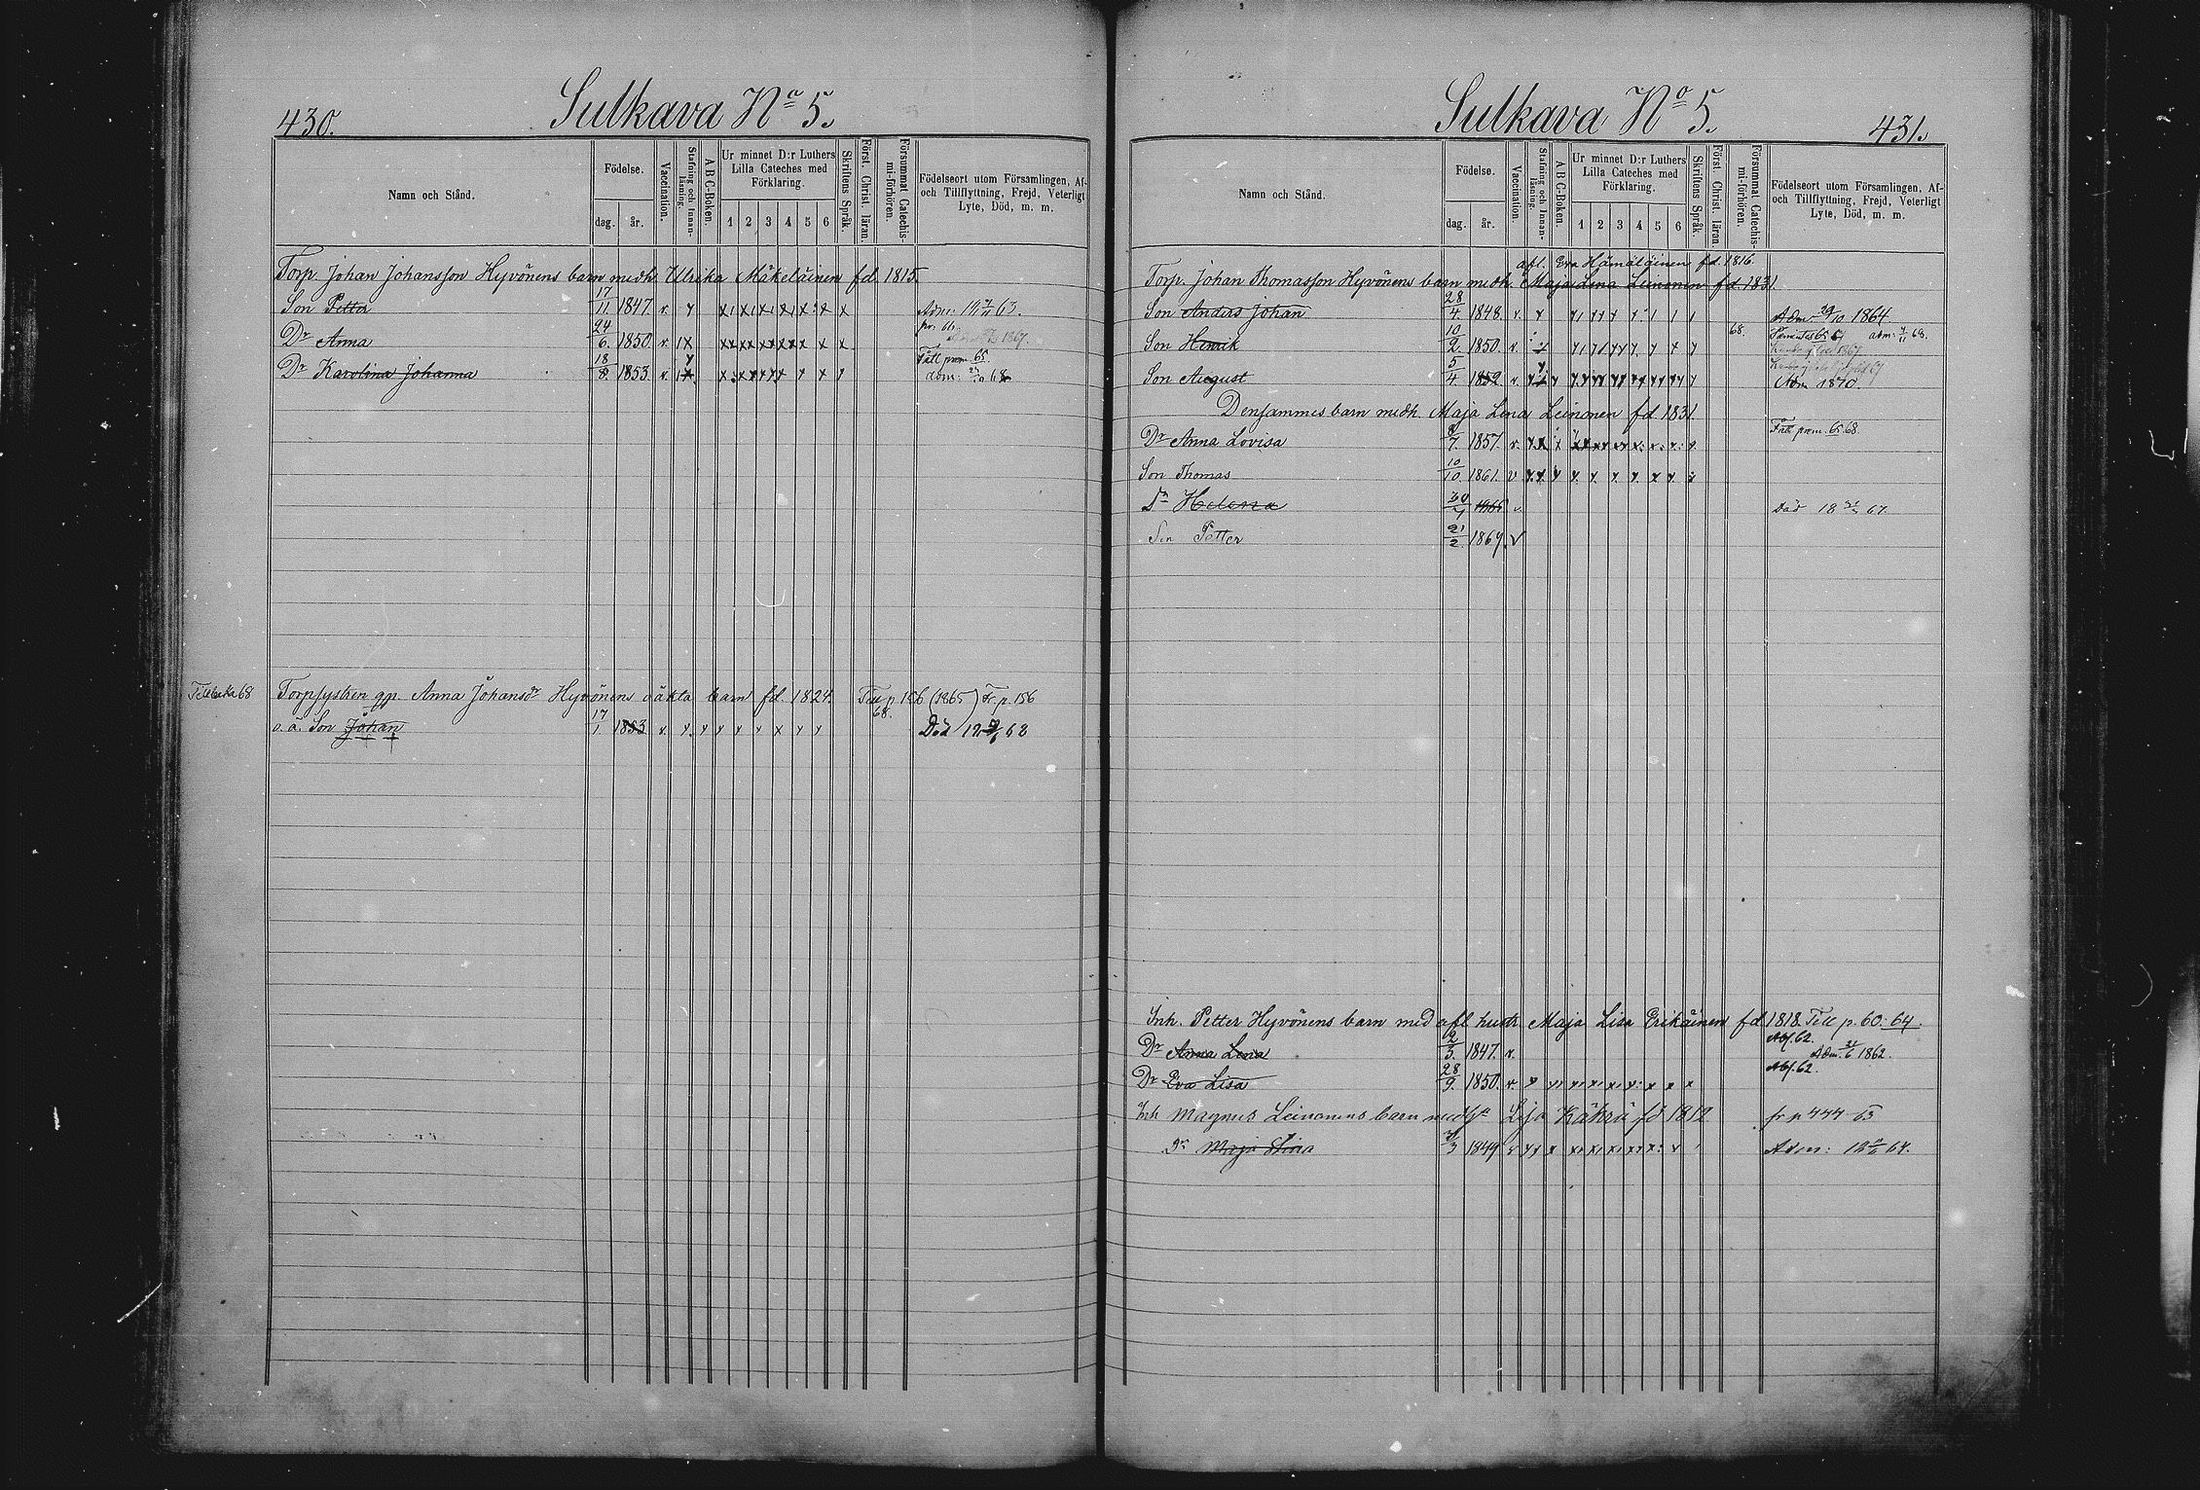 430.
Sulkava No 5.
Namn och Stånd.
Födelse.
dag.
år.
Vaccination.
Stafning och Innanläsning.
A B C-Boken.
Ur minnet D:r Luthers Lilla Cateches med Förklaring.
1 2 3 4 5 6
Skriftens Språk.
Först. Christ. läran.
Försummat Catechismi-förhören.
Födelseort utom Församlingen, Af- och Tillflyttning, Frejd, Veterligt Lyte, Död, m. m.
Torp. Johan Johansson Hyvönens barn medh. Ulrika Mäkeläinen fd 1815.
Son Petter 17/11. 1847. v.
Dr Anna 24/6. 1850. v.
Dr Karolina Johanna 18/8. 1853. v. Fått præm. 65.
Torpsystren gp. Anna Johansdr Hyvönens oäkta barn fd. 1824. p. 156 (1865) Fr. p. 156
68.
o. ä. Son Johan 17/1. 1853 v. Död
Sulkava No 5.
431.
Namn och Stånd.
Födelse.
dag.
år.
Vaccination.
Stafning och Innanläsning.
A B C-Boken.
Ur minnet D:r Luthers Lilla Cateches med Förklaring.
1 2 3 4 5 6
Skriftens Språk.
Först. Christ. läran.
Försummat Catechismi-förhören.
Födelseort utom Församlingen, Af- och Tillflyttning, Frejd, Veterligt Lyte, Död, m. m.
afl. Eva Hämäläinen fd. 1816
Torp. Johan Thomasson Hyvönens barn medh. Maja Lena Leinonen fd. 1831.
Son Anders Johan 28/4. 1848. v. Adm. 29/10 1864
Son Henrik 10/2. 1850. v. 68.
Son August 5/4 1852 v. Adm 1870
Densammes barn medh. Maja Lena Leinonen fd 1831.
Dr Anna Lovisa 8/7. 1857. v. Fått præm. 65. 68.
Son Thomas 10/10. 1861. v
Dr Helena Död
Son Petter 21/2. 1869. v
Inh. Petter Hyvönens barn med afl hustr Maja Lisa Erikäinen fd 1818. Till p. 60. 64.
Dr Anna Lena 2/3. 1847. v. Abs. 62. Adm. 21/6 1862.
Dr Eva Lisa 28/9. 1850. v. Abs. 62.
Inh Magnus Leinonens barn Lisa Kähkö fd 1812. fr p 444 63
Dr Maja Stina 1849 v Adm: